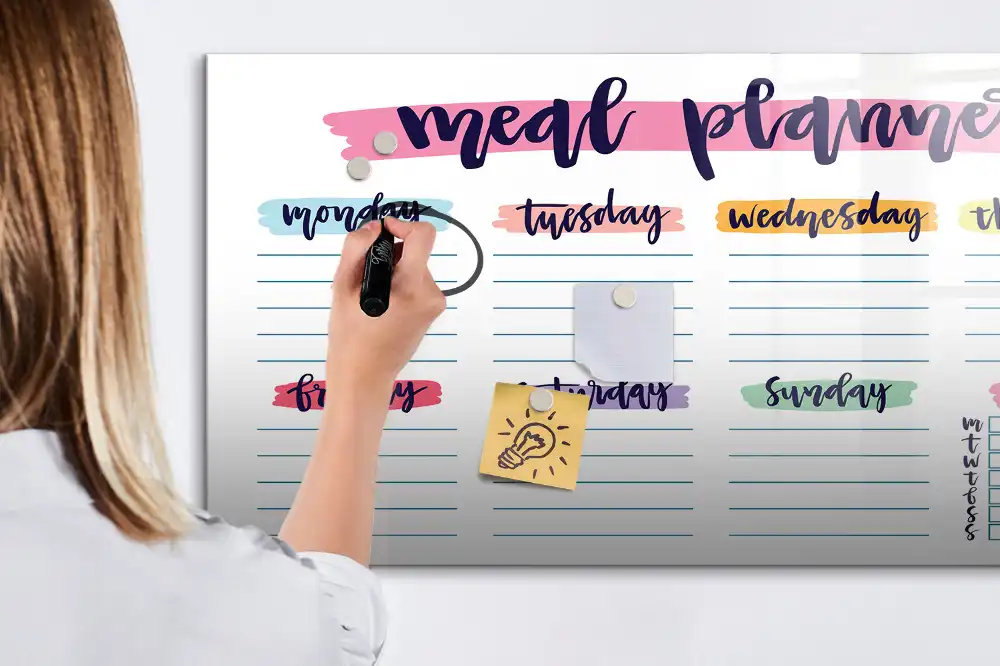 meal planne
monday tuesday wednesday th
friday saturday sunday
m
t
w
t
f
s
s